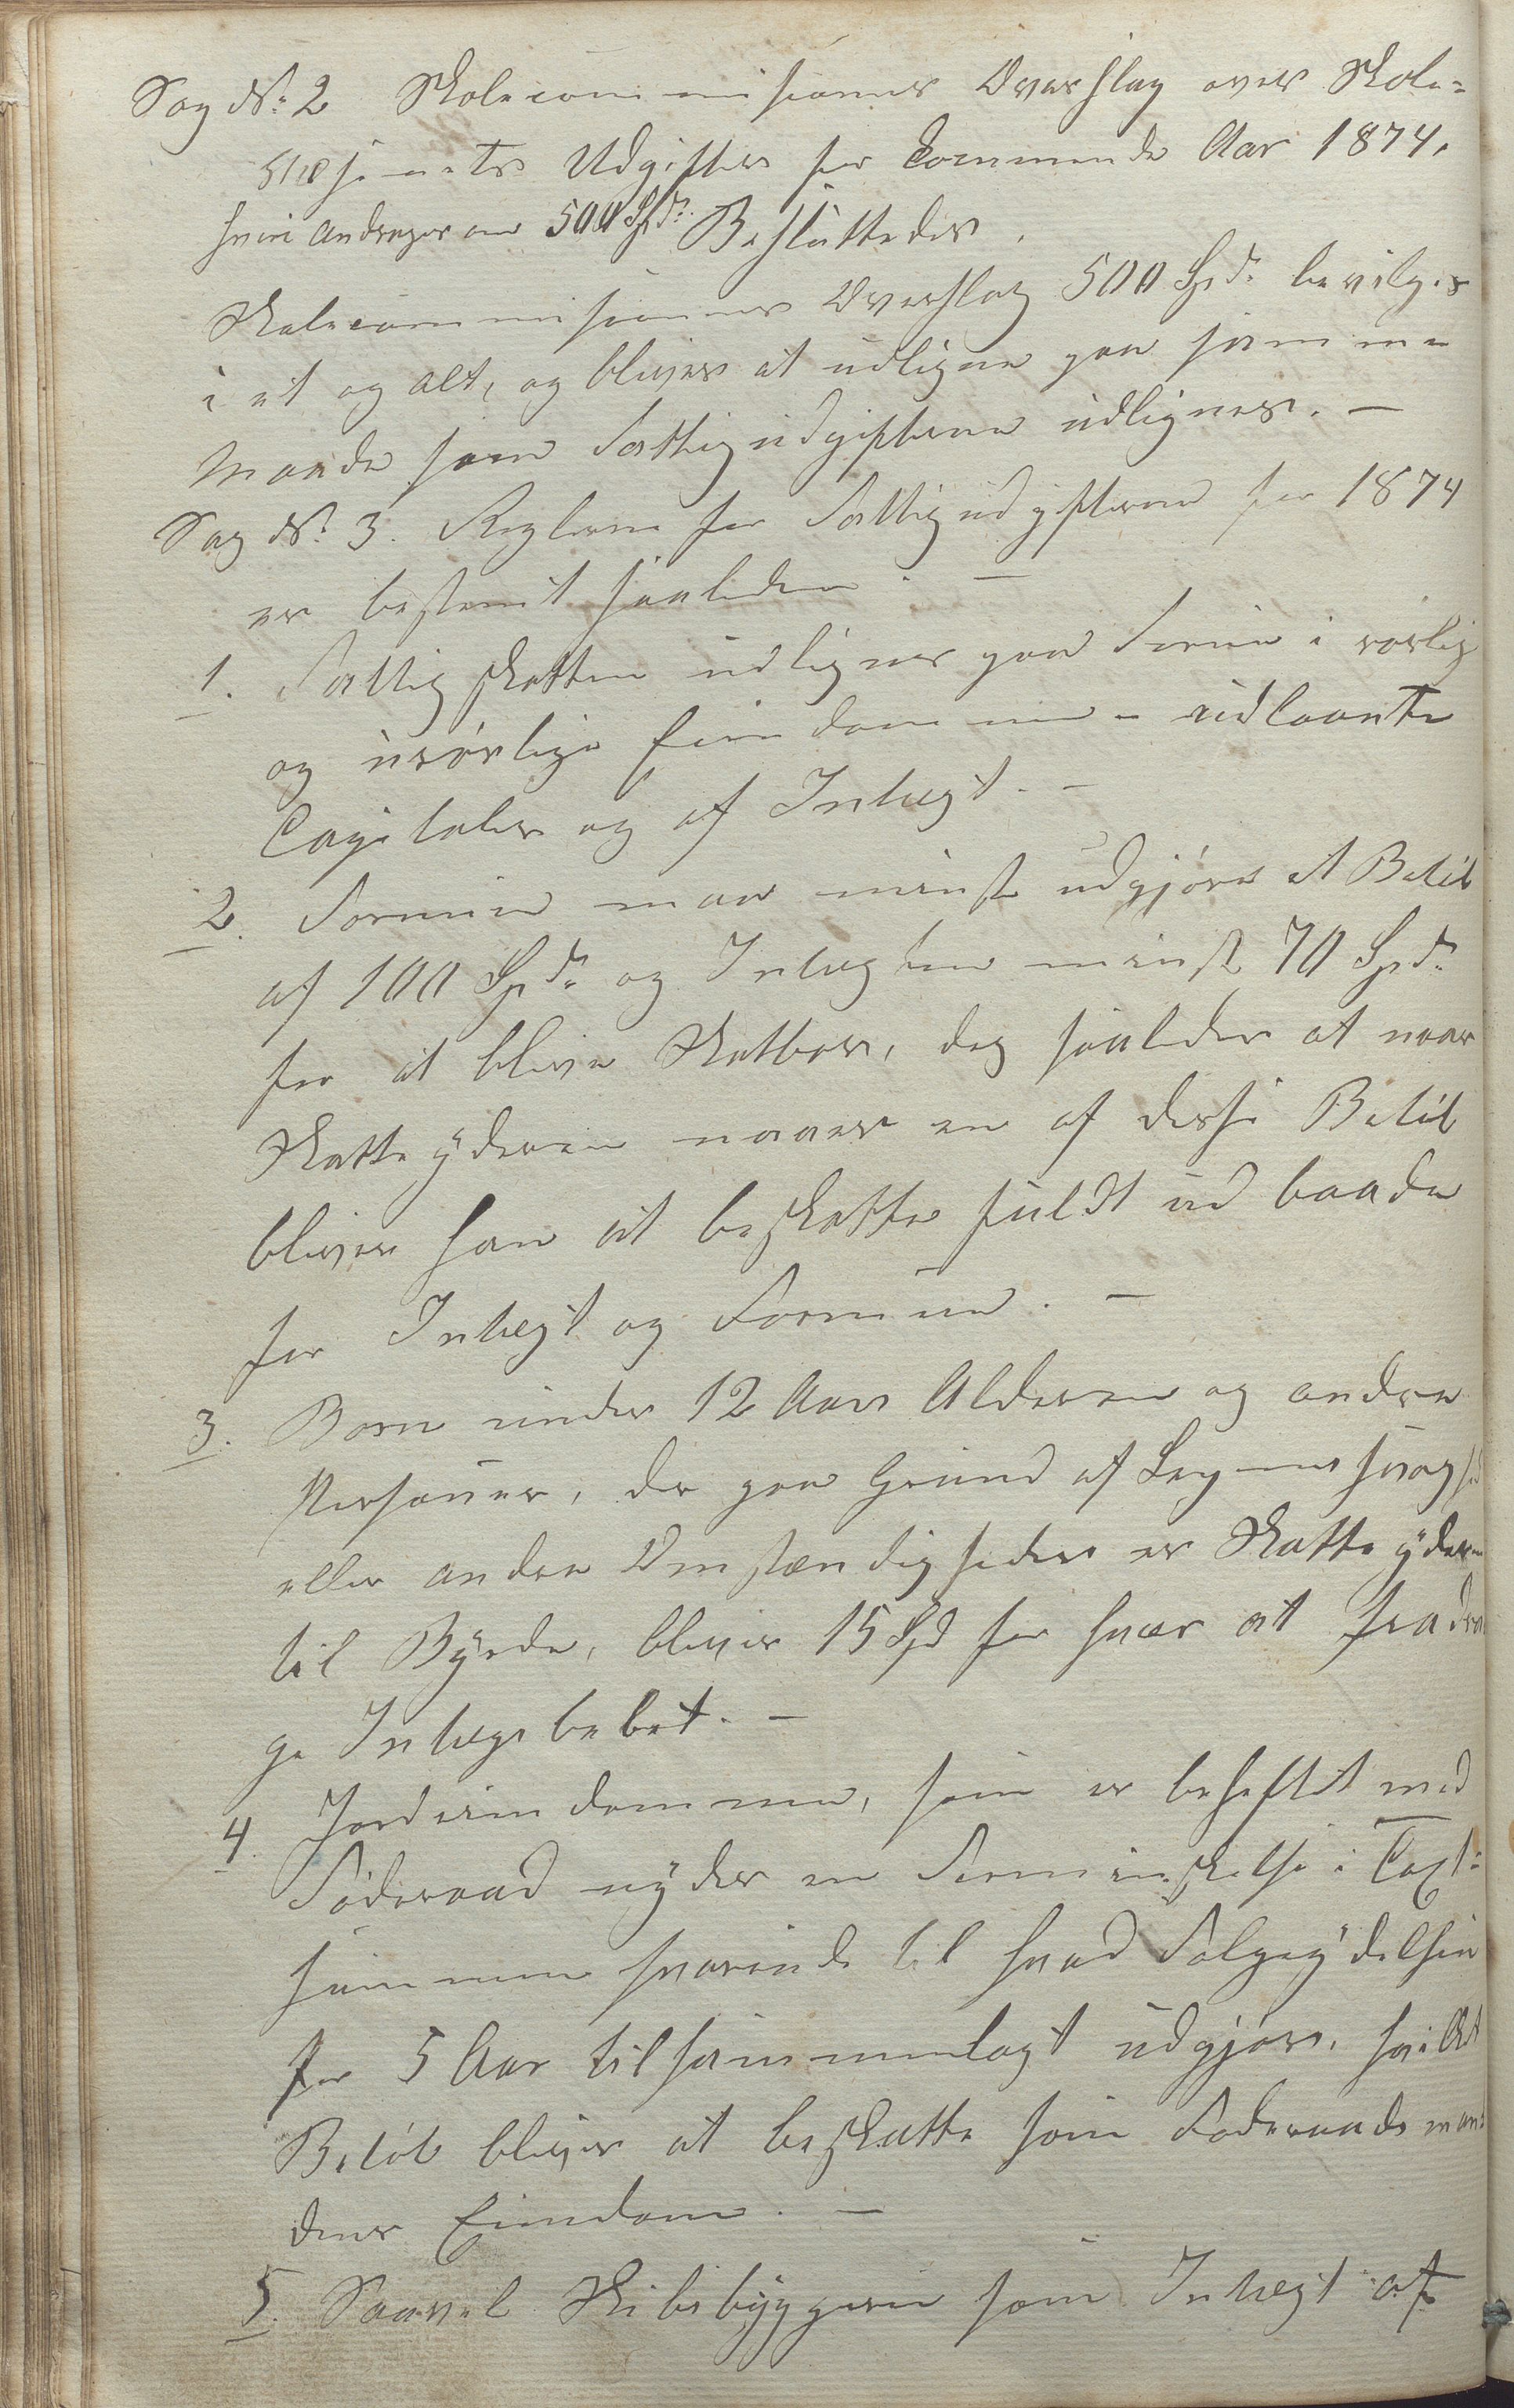 Sag No. 2 Skolecommisionens Overslag over Skole-
væsenets Udgifter for kommende Aar 1874,
hvori andrages om 500 Spd. Besluttedes.
Skolecommisionens Overslag 500 Spd. bevilges
i et og alt, og bliver at udligne paa samme
Maade som Fattigudgifterne udlignes. —
Sag No. 3. Reglerne for Fattigudgifterne for 1874
er bestemt saaledes. —
1. Fattigskatten udlignes paa Formue i rørlig
og urørlige Eiendomme - udlaante
Capitaler og af Intægt. -
2. Formuen maa minst udgjøre et Beløb
af 100 Spd. og Intægten minst 70 Spd.
for at blive Skatbar, dog saaledes at naar
Skatteyderen naaer en af disse Beløb
bliver han at beskatte fuldt ud baade
for Intægt og Formue. —
3. Børn under 12 Aars Alderen og andre
Personer, der paa Grund af Legemssvaghed
eller andre Omstændigheder er Skatteyderen
til Byrde, bliver 15 Spd for hver at fradra
ge Intægsbeløbet. —
4. Jordeiendomme, som er beheftet med
Føderaad nyder en Forminskelse i Taxt-
summen svarende til hvad Folgeydelsen
for 5 Aar tilsammenlagt udgjør, hvilket
Beløb bliver at beskatte som Føderaadsman
dens Eiendom. —
5. Saavel Skibsbyggeri som Intægt af